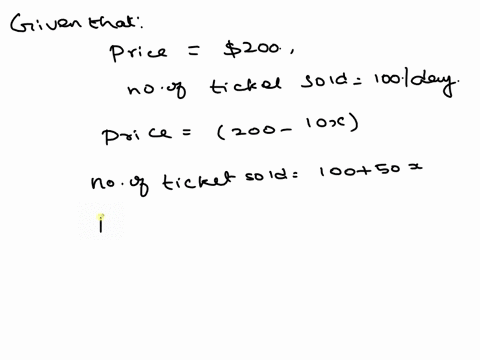 Given that:
Price = $200.,
no. of ticket sold = 100/day.
Price = (200 - 10x)
no. of ticket sold = 100+50x